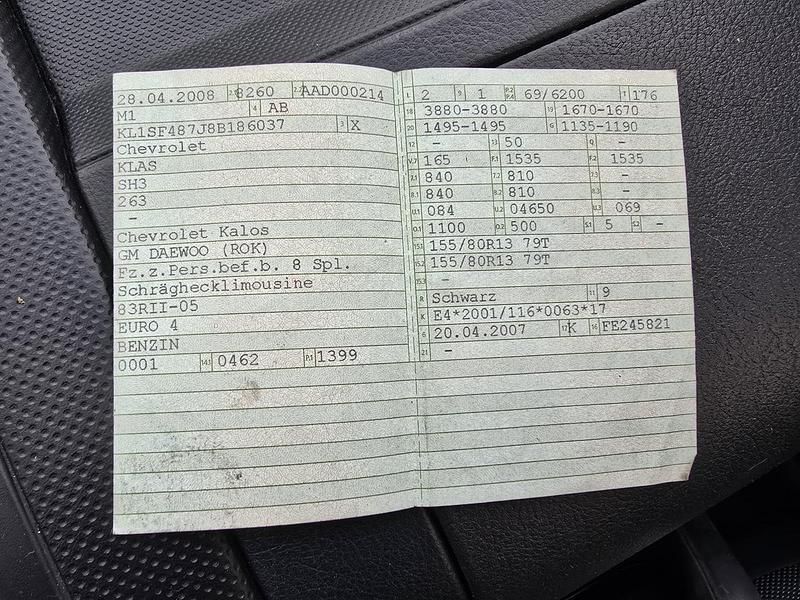 28.04.2008 8260 AAD000214
M1 4 AB
KL1SF487J8B186037 3 X
Chevrolet
KLAS
SH3
263
–
Chevrolet Kalos
GM DAEWOO (ROK)
Fz.z.Pers.bef.b. 8 Spl.
Schräghecklimousine
83RII-05
EURO 4
BENZIN
0001 14.1 0462 P.1 1399
L 2 9 1 P.2 P.4 69/6200 T 176
18 3880-3880 19 1670-1670
20 1495-1495 G 1135-1190
12 – 13 50 Q –
V.7 165 F.1 1535 F.2 1535
7.1 840 7.2 810 7.3 –
8.1 840 8.2 810 8.3 –
U.1 084 U.2 04650 U.3 069
O.1 1100 O.2 500 S.1 5 S.2 –
15.1 155/80R13 79T
15.2 155/80R13 79T
15.3 –
R Schwarz 11 9
K E4*2001/116*0063*17
6 20.04.2007 17 K 16 FE245821
21 –